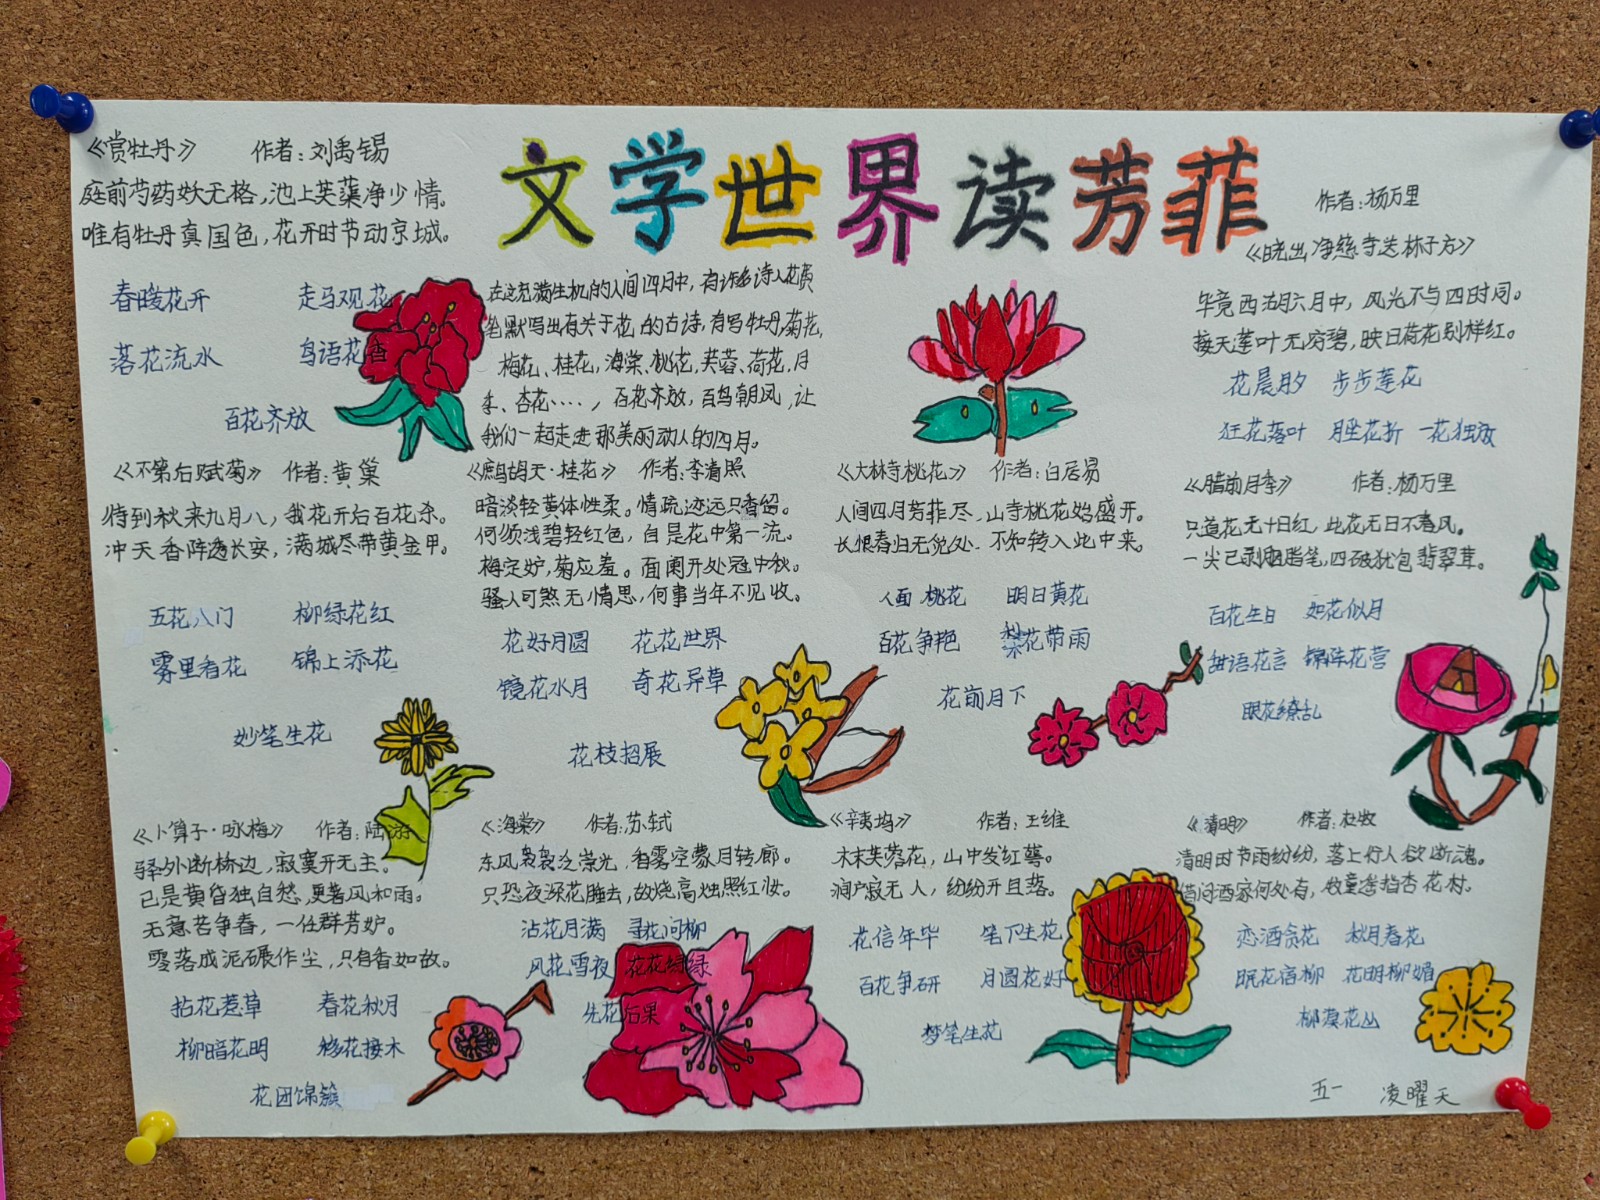 文学世界读芳菲
《赏牡丹》 作者:刘禹锡
庭前芍药妖无格,池上芙蕖净少情。
唯有牡丹真国色,花开时节动京城。
春暖花开 走马观花
落花流水 鸟语花香
百花齐放
在这充满生机的人间四月中,有许多诗人花费
笔默写出有关于花的古诗,有写牡丹,菊花,
梅花、桂花,海棠、桃花,芙蓉、荷花,月
季、杏花····,百花齐放,百鸟朝凤,让
我们一起走进那美丽动人的四月。
作者:杨万里
《晓出净慈寺送林子方》
毕竟西湖六月中,风光不与四时同。
接天莲叶无穷碧,映日荷花别样红。
花晨月夕 步步莲花
狂花落叶 花折 一花独放
《不第后赋菊》 作者:黄巢
待到秋来九月八,我花开后百花杀。
冲天香阵透长安,满城尽带黄金甲。
五花八门 柳绿花红
雾里看花 锦上添花
妙笔生花
《鹧鸪天·桂花》 作者:李清照
暗淡轻黄体性柔。情疏迹远只香留。
何须浅碧轻红色,自是花中第一流。
梅定妒,菊应羞。画阑开处冠中秋。
骚人可煞无情思,何事当年不见收。
花好月圆 花花世界
镜花水月 奇花异草
花枝招展
《大林寺桃花》 作者:白居易
人间四月芳菲尽,山寺桃花始盛开。
长恨春归无觅处,不知转入此中来。
人面桃花 明日黄花
百花争艳 梨花带雨
花前月下
《腊前月季》 作者:杨万里
只道花无十日红,此花无日不春风。
一尖已剥胭脂笔,四破犹包翡翠茸。
百花生日 如花似月
甜语花言 锦阵花营
眼花缭乱
《卜算子·咏梅》 作者:陆游
驿外断桥边,寂寞开无主。
已是黄昏独自愁,更著风和雨。
无意苦争春,一任群芳妒。
零落成泥碾作尘,只有香如故。
拈花惹草 春花秋月
柳暗花明 移花接木
花团锦簇
《海棠》 作者:苏轼
东风袅袅泛崇光,香雾空蒙月转廊。
只恐夜深花睡去,故烧高烛照红妆。
沾花月满 寻花问柳
风花雪夜 花花绿绿
先花后果
《辛夷坞》 作者:王维
木末芙蓉花,山中发红萼。
涧户寂无人,纷纷开且落。
花信年华 笔下生花
百花争研 月圆花好
梦笔生花
《清明》 作者:杜牧
清明时节雨纷纷,落上行人欲断魂。
借问酒家何处有,牧童遥指杏花村。
恋酒贪花 秋月春花
眠花宿柳 花明柳媚
柳漠花丛
五一 凌曜天